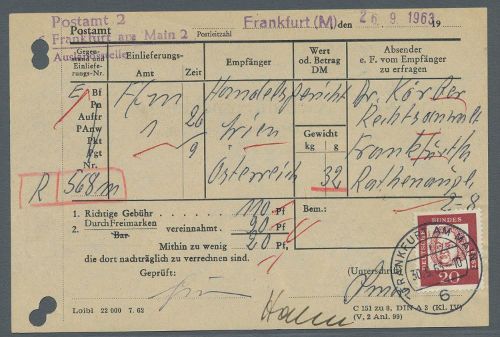 Postamt 2
Frankfurt am Main 2
Auslandsstelle
Postamt
Postleitzahl
Frankfurt (M)
den
26. 9. 1963
19
Gegenstand und Einlieferungs-Nr.
Einlieferungs-
Amt
Zeit
Empfänger
Wert od. Betrag DM
Absender e. F. vom Empfänger zu erfragen
E Bf
Pn
Auftr
PAnw
Pkt
Pgt
Nr.
R 568 m
Ffm
1
26
9
Handelsgericht
Wien
Österreich
Gewicht
kg
g
32
Dr. Körber
Rechtsanwalt
Frankfurt/M
Rathenaupl.
2-8
1. Richtige Gebühr
110 Pf
2. Durch Freimarken
Bar
vereinnahmt
90 Pf
Mithin zu wenig
20 Pf,
die dort nachträglich zu verrechnen sind.
Bem.:
Geprüft:
(Unterschrift)
DEUTSCHE BUNDESPOST
20
FRANKFURT AM MAIN
6
Loibl 22 000 7. 62
C 151 zu 8, DIN A 3 (Kl. IV)
(V, 2 Anl. 99)